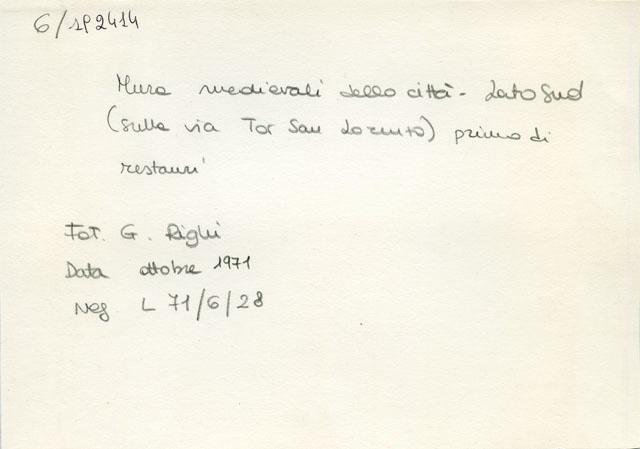 6/1P2414
Mura medievali della città - Lato Sud
(sulla via Tor San Lorenzo) prima di
restauri
Fot. G. Righi
Data ottobre 1971
Neg L 71/6/28